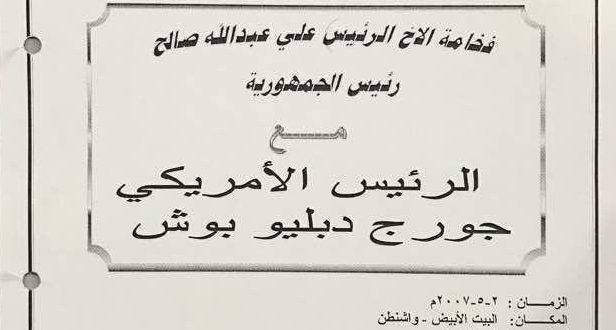 فخامة الاخ الرئيس علي عبدالله صالح
رئيس الجمهورية
مـــع
الرئيس الأمريكي
جورج دبليو بوش
الزمـــان : ٢-٥-٢٠٠٧م
المكـان: البيت الأبيض - واشنطن